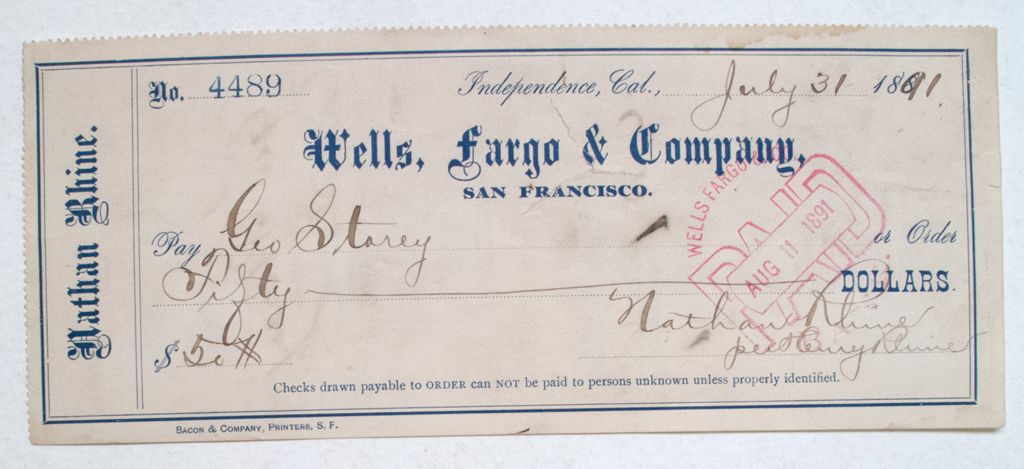 Nathan Rhine.
No. 4489 Independence, Cal., July 31 1891.
Wells, Fargo & Company,
SAN FRANCISCO.
Pay Geo Storey or Order
Fifty DOLLARS.
WELLS FARGO
PAID
AUG 11 1891
Nathan Rhine
$ 50 per Henry Rhine
Checks drawn payable to ORDER can NOT be paid to persons unknown unless properly identified.
BACON & COMPANY, PRINTERS, S. F.